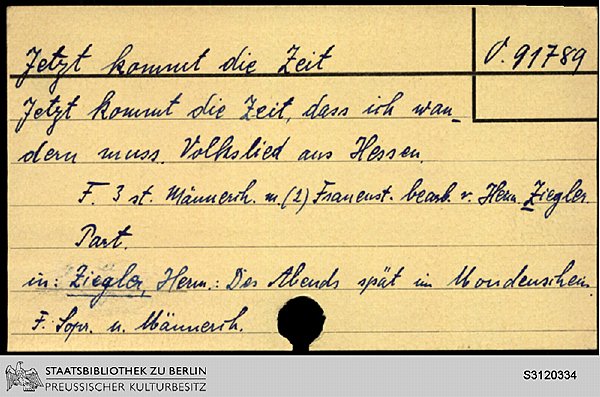 Jetzt kommt die Zeit
O. 91789
Jetzt kommt die Zeit, dass ich wan_
dern muss. Volkslied aus Hessen.
F. 3 st. Männerch. m. (2) Frauenst. bearb. v. Herm. Ziegler.
Part.
in: Ziegler, Herm.: Des Abends spät im Mondenschein.
F. Sopr. u. Männerch.
STAATSBIBLIOTHEK ZU BERLIN
PREUSSISCHER KULTURBESITZ
S3120334